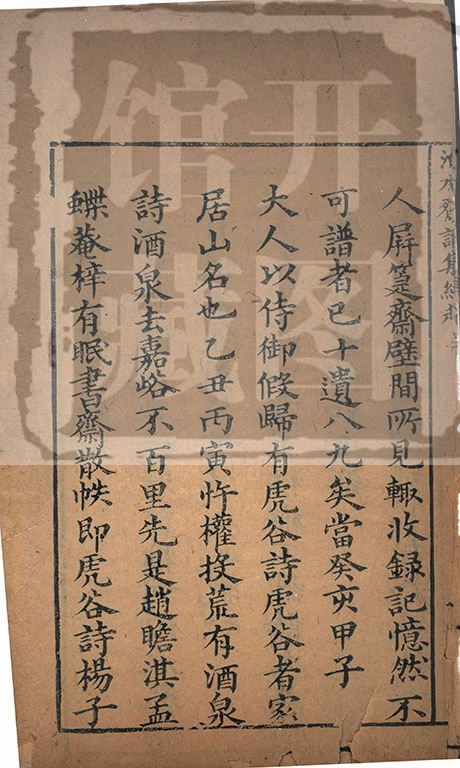 人屏箑齋壁間所見輙收録記憶然不
可譜者已十遺八九矣當癸亥甲子
大人以侍御假歸有虎谷詩虎谷者家
居山名也乙丑丙寅忤權投荒有酒泉
詩酒泉去嘉峪不百里先是趙瞻淇孟
蝶菴梓有眠書齋散帙即虎谷詩楊子
开图
馆藏